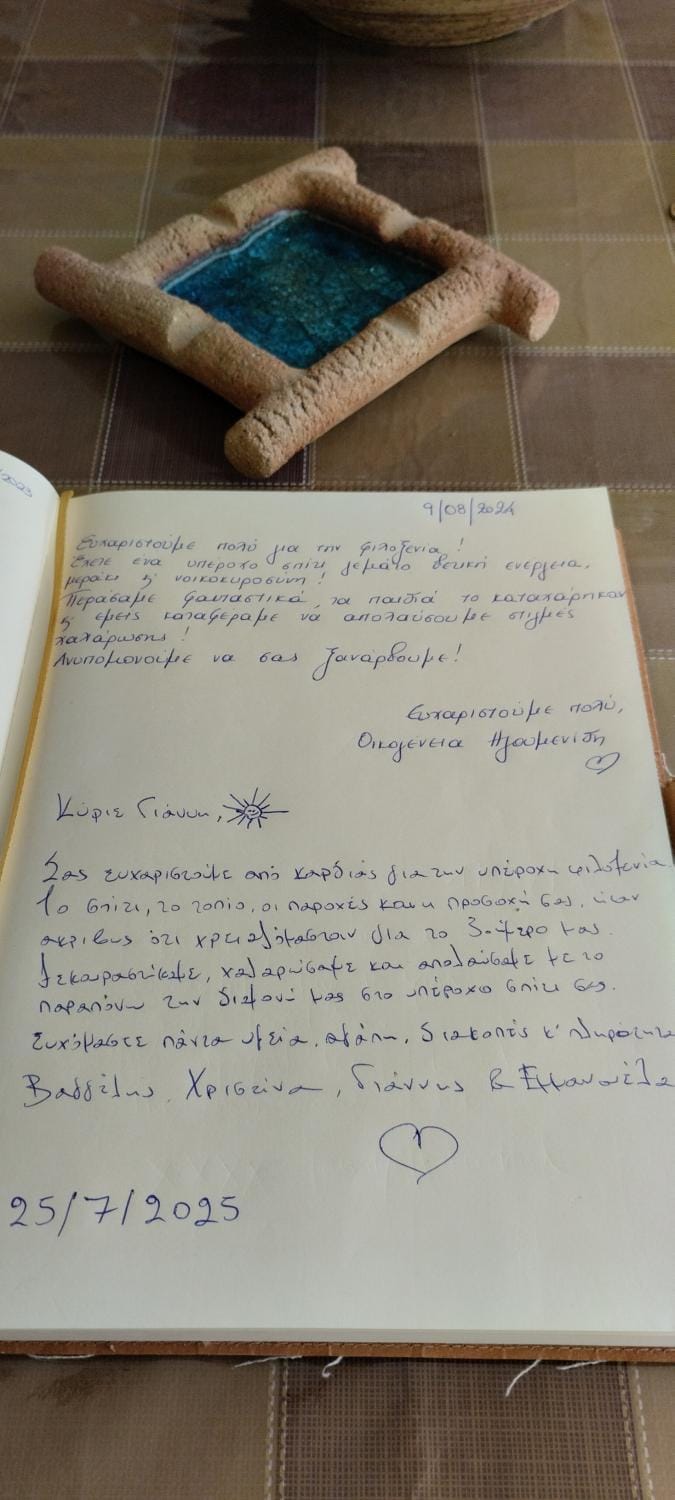 2023
9/08/2024
Ευχαριστούμε πολύ για την φιλοξενία!
Έχετε ένα υπέροχο σπίτι γεμάτο θετική ενέργεια,
μεράκι & νοικοκυροσύνη!
Περάσαμε φανταστικά, τα παιδιά το καταχάρηκαν
& εμείς καταφέραμε να απολαύσουμε στιγμές
χαλάρωσης!
Ανυπομονούμε να σας ξανάρθουμε!
Ευχαριστούμε πολύ,
Οικογένεια Ηγουμενίδη
Κύριε Γιάννη,
Σας ευχαριστούμε από καρδιάς για την υπέροχη φιλοξενία.
Το σπίτι, το τοπίο, οι παροχές και η προσοχή σας, ήταν
ακριβώς ότι χρειαζόμασταν για το 3-ήμερο μας.
Ξεκουραστήκαμε, χαλαρώσαμε και απολαύσαμε με το
παραπάνω την διαμονή μας στο υπέροχο σπίτι σας.
Ευχόμαστε πάντα υγεία, αγάπη, διακοπές κ' πληρότητα
Βαγγέλης, Χριστίνα, Γιάννης & Εμμανουέλα
25/7/2025